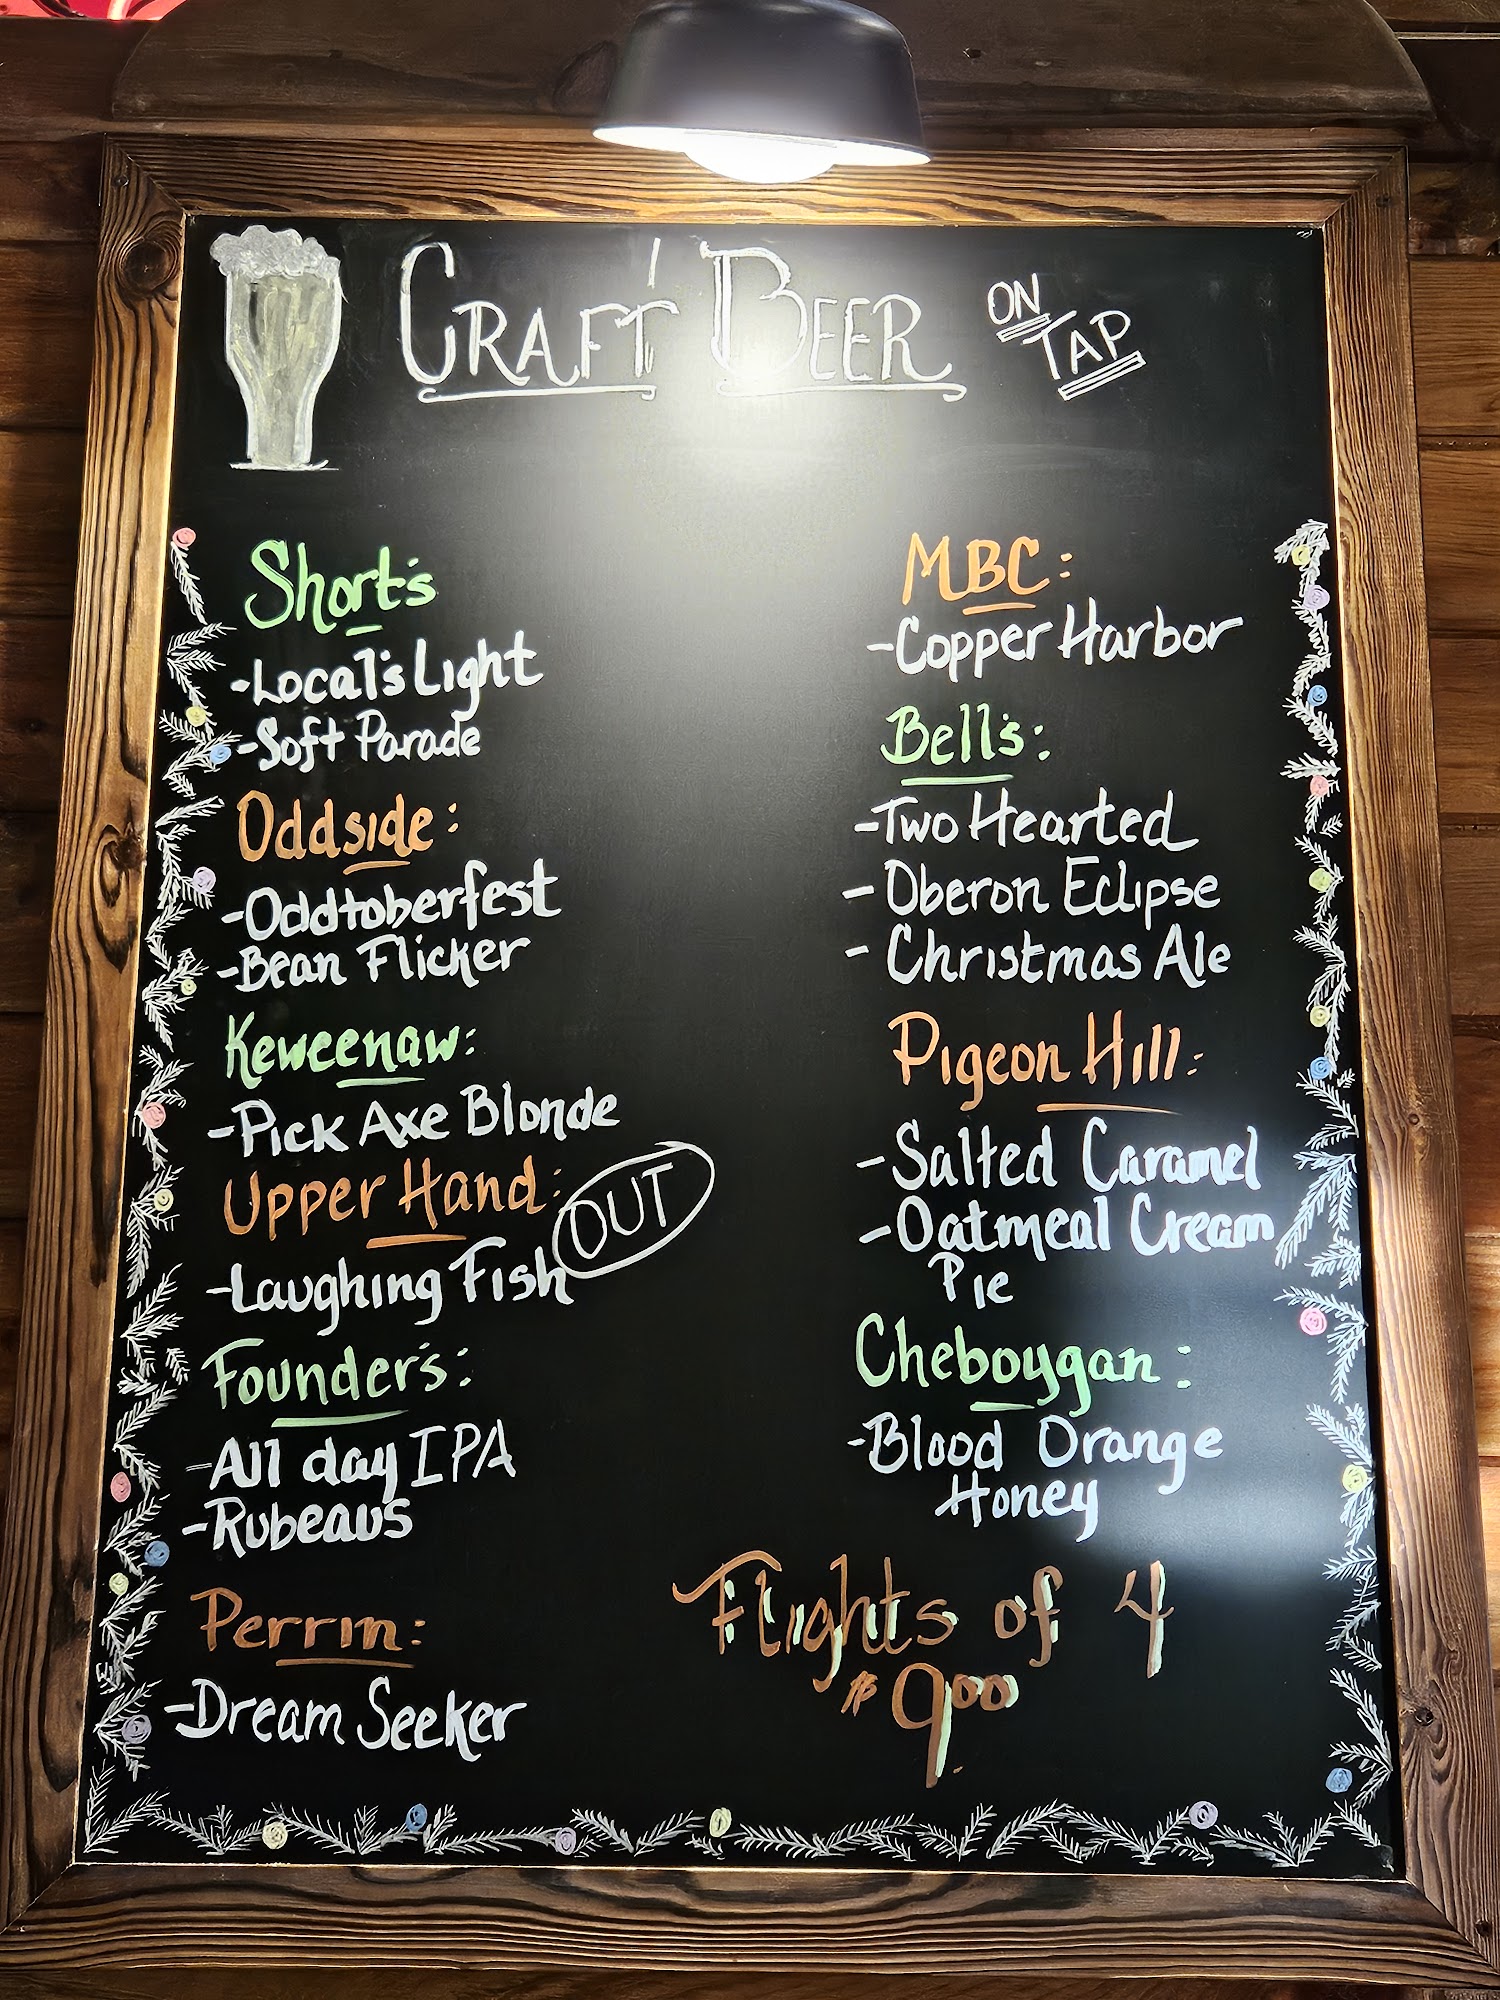 CRAFT BEER ON TAP
Short's
-Local's Light
-Soft Parade
Oddside:
-Oddtoberfest
-Bean Flicker
Keweenaw:
-Pick Axe Blonde
Upper Hand:
OUT
-Laughing Fish
Founder's:
-All day IPA
-Rubeaus
Perrin:
-Dream Seeker
MBC:
-Copper Harbor
Bell's:
-Two Hearted
- Oberon Eclipse
- Christmas Ale
Pigeon Hill:
-Salted Caramel
-Oatmeal Cream
Pie
Cheboygan:
-Blood Orange
Honey
Flights of 4
$9.00